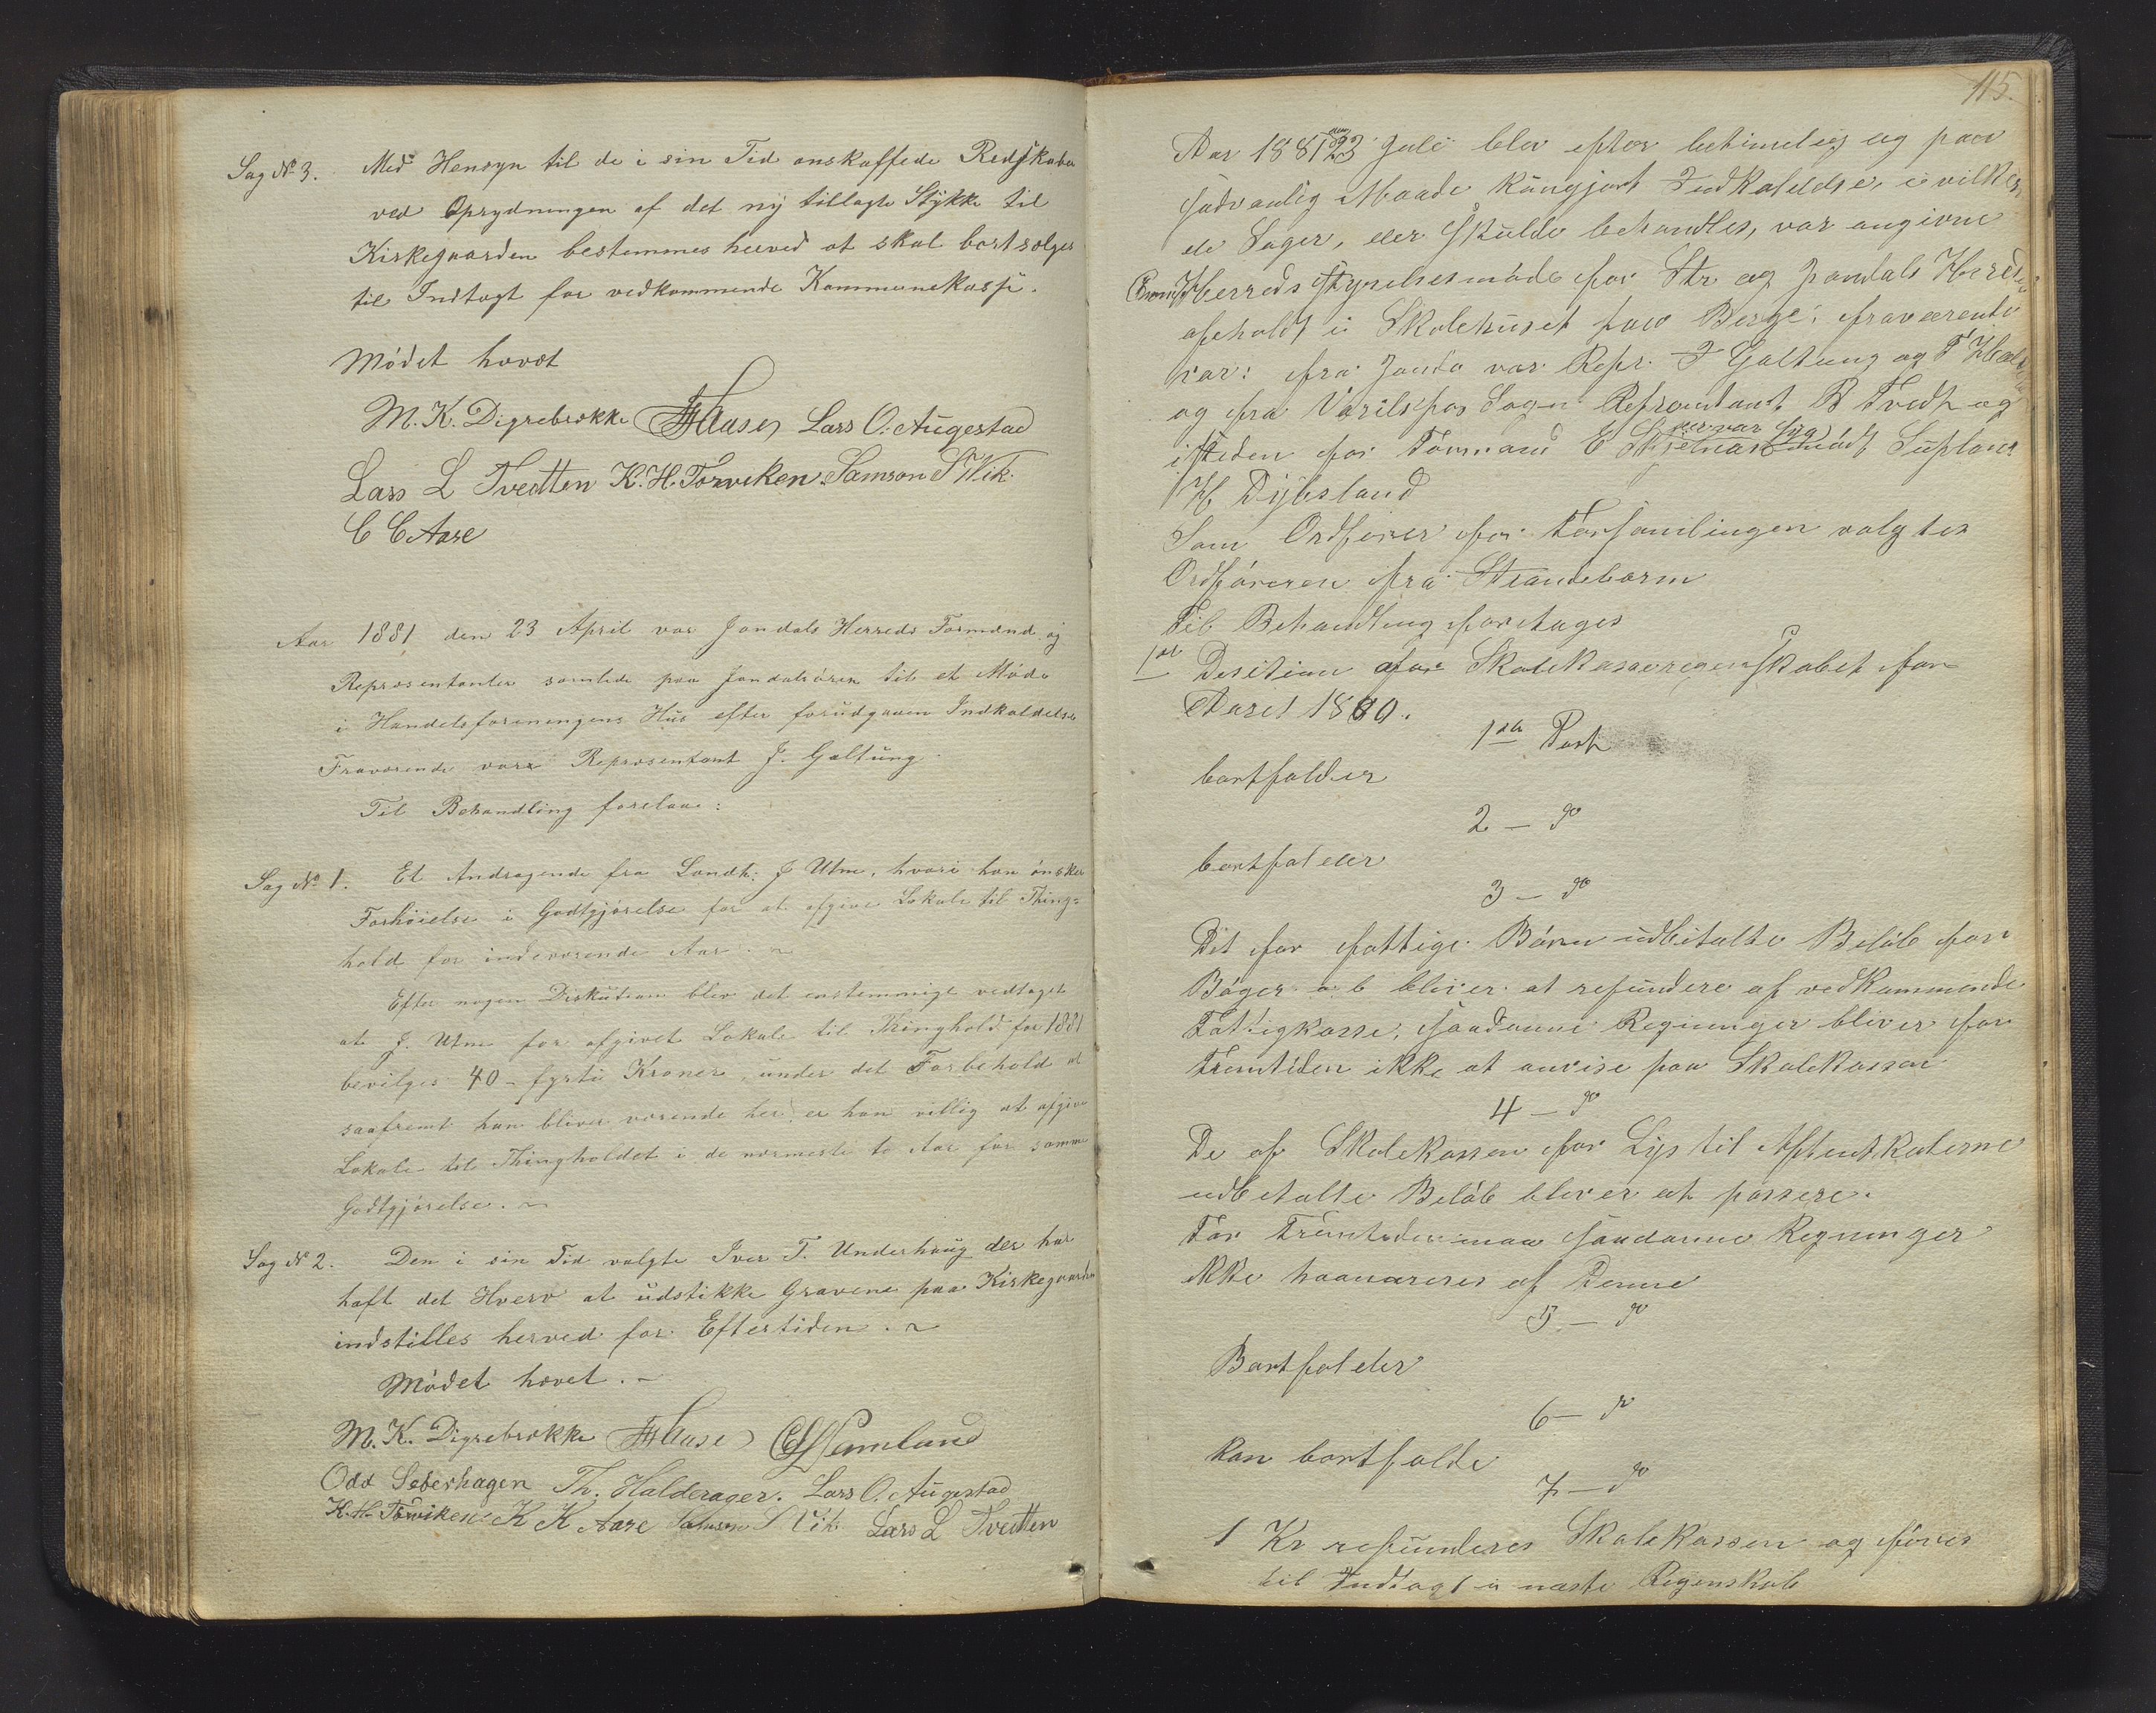 Sag № 3. Med Hensyn til de i sin Tid anskaffede Redskaber
ved Oprydningen af det ny tillagte Stykke til
Kirkegaarden bestemmes herved at skal bortsælges
til Indtægt for vedkommende Kommunekasse.
Mödet hævet
M. K. Digrebrække Lars O. Augestad
Lars L Tveitten K. H. Torviken Samson S Vik
C C Aase
Aar 1881 den 23 April var Jondals Herreds Formænd og
Repræsentanter samlede paa Jondalsören til et Möde
i Handelsforeningens Hus efter forudgaaen Indkaldelse
Fraværende var Repræsentant J. Galtung
Til Behandling forelaa:
Sag № 1. Et Andragende fra Landh: J Utne, hvori han önsker
Forhöielse i Godtgjörelse for at afgive Lokale til Thing-
hold for indeværende Aar. ~
Efter nogen Diskution blev det enstemmigt vedtaget
at J. Utne for afgivet Lokale til Thinghold for 1881
bevilges 40 - fyrti Kroner, under det Forbehold at
saafremt han bliver værende her, er han villig at afgive
Lokale til Thingholdet i de nærmeste to Aar for samme
Godtgjörelse. ~
Sag № 2. Den i sin Tid valgte Iver T. Underhaug der har
haft det Hverv at udstikke Gravene paa Kirkegaarden
indstilles herved for Eftertiden. ~
Mödet hævet. ~
M. K. Digrebrække
Odd Seberhagen Th. Halderager. Lars O. Augestad
K. H. Torviken K K Aase Samson S Vik Lars L Tveitten
115.
Aar 1881 den 23 Juli blev efter betimelig og paa
sædvanlig Maade kungjort Indkaldelse, i vilken
de Sager, der skulde behandles, var angivne
Herredsstyrelsesmöde for Str og Jondals Herreder
afholdt i Skolehuset paa Berge; fraværende
var: fra Jondal var Repr. J Galtung og T
og fra Varilsfos Sogn Repræsentant B Tvedt og
isteden for Formand E der var fra mödt Suplant
H Dybsland
Som Ordförer for Forsamlingen valgtes
Ordföreren fra Strandebarm
Til Behandling foretages
1st Desition afor Skolekasseregenskabet for
Aaret 1880.
1ste Post
bortfalder
2 - do
bortfalder
3 - do
Det for fattige Börn udbetalte Belöb for
Böger a b bliver at refundere af vedkommende
Fattigkasse, saadanne Regninger bliver for
Fremtiden ikke at anvise paa Skolekassen
4 - do
De af Skolekassen for Lys til Aftenskolerne
udbetalte Belöb bliver at passere.
For Fremtiden maa saadanne Regninger
ikke honoreres af Denne
5 - do
Bortfalder
6 - do
kan bortfalde
7 - do
1 Kr refunderes Skolekassen og föres
til Indtægt i næste Regenskab